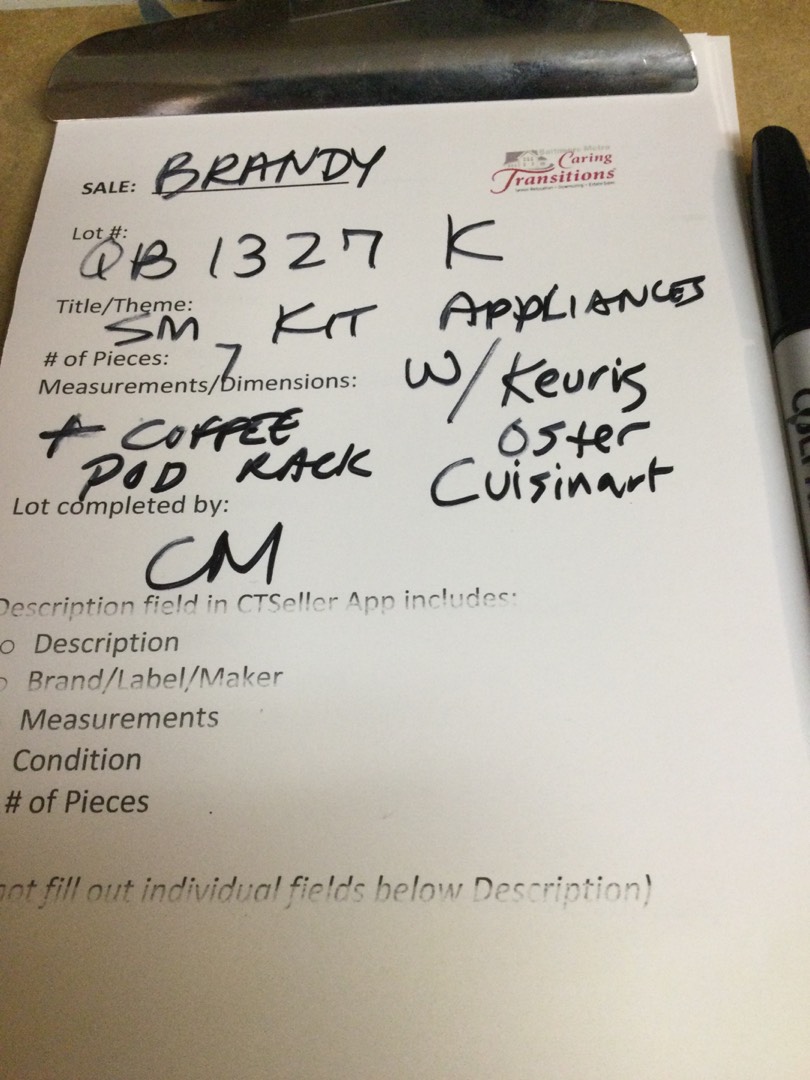 SALE: BRANDY
Caring
Transitions
Lot #:
QB 1327 K
Title/Theme:
SM KIT APPLIANCES
# of Pieces: 7
Measurements/Dimensions:
W/Keurig
Oster
Cuisinart
+ COFFEE
POD RACK
Lot completed by:
CM
Description field in CTSeller App includes:
Description
Brand/Label/Maker
Measurements
Condition
# of Pieces
not fill out individual fields below Description)